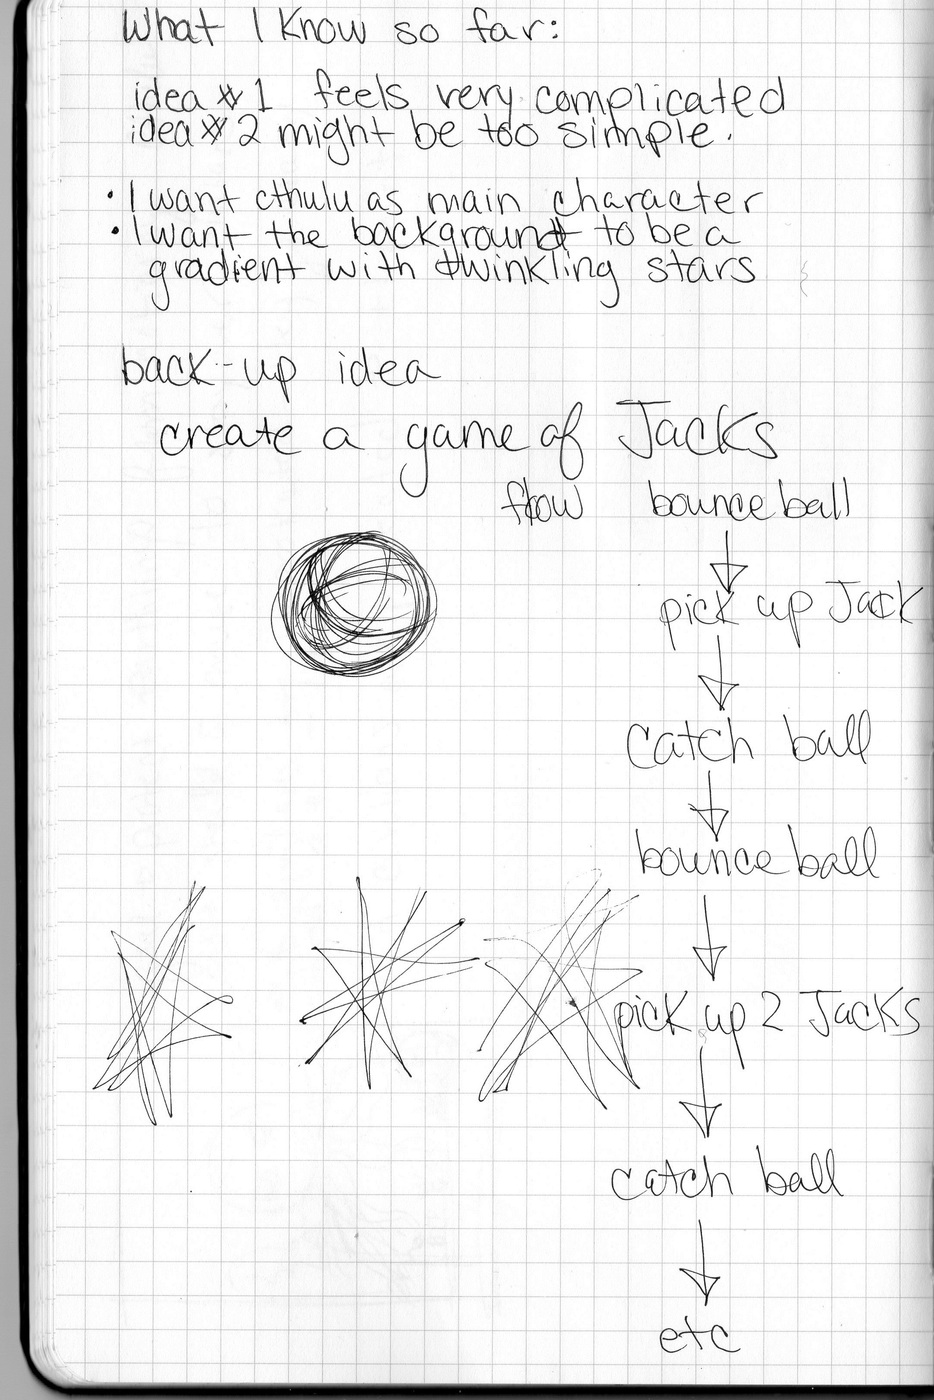 What I know so far:
idea #1 feels very complicated
idea #2 might be too simple.
• I want cthulu as main character
• I want the background to be a
gradient with twinkling stars
back-up idea
create a game of Jacks
flow bounce ball
pick up Jack
catch ball
bounce ball
pick up 2 Jacks
catch ball
etc